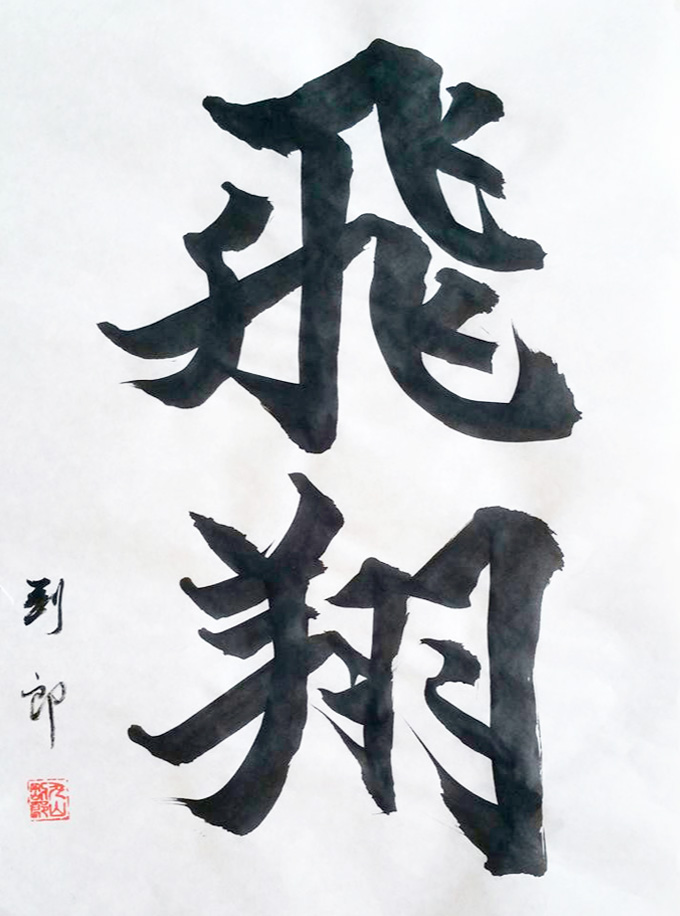 飛翔
到郎